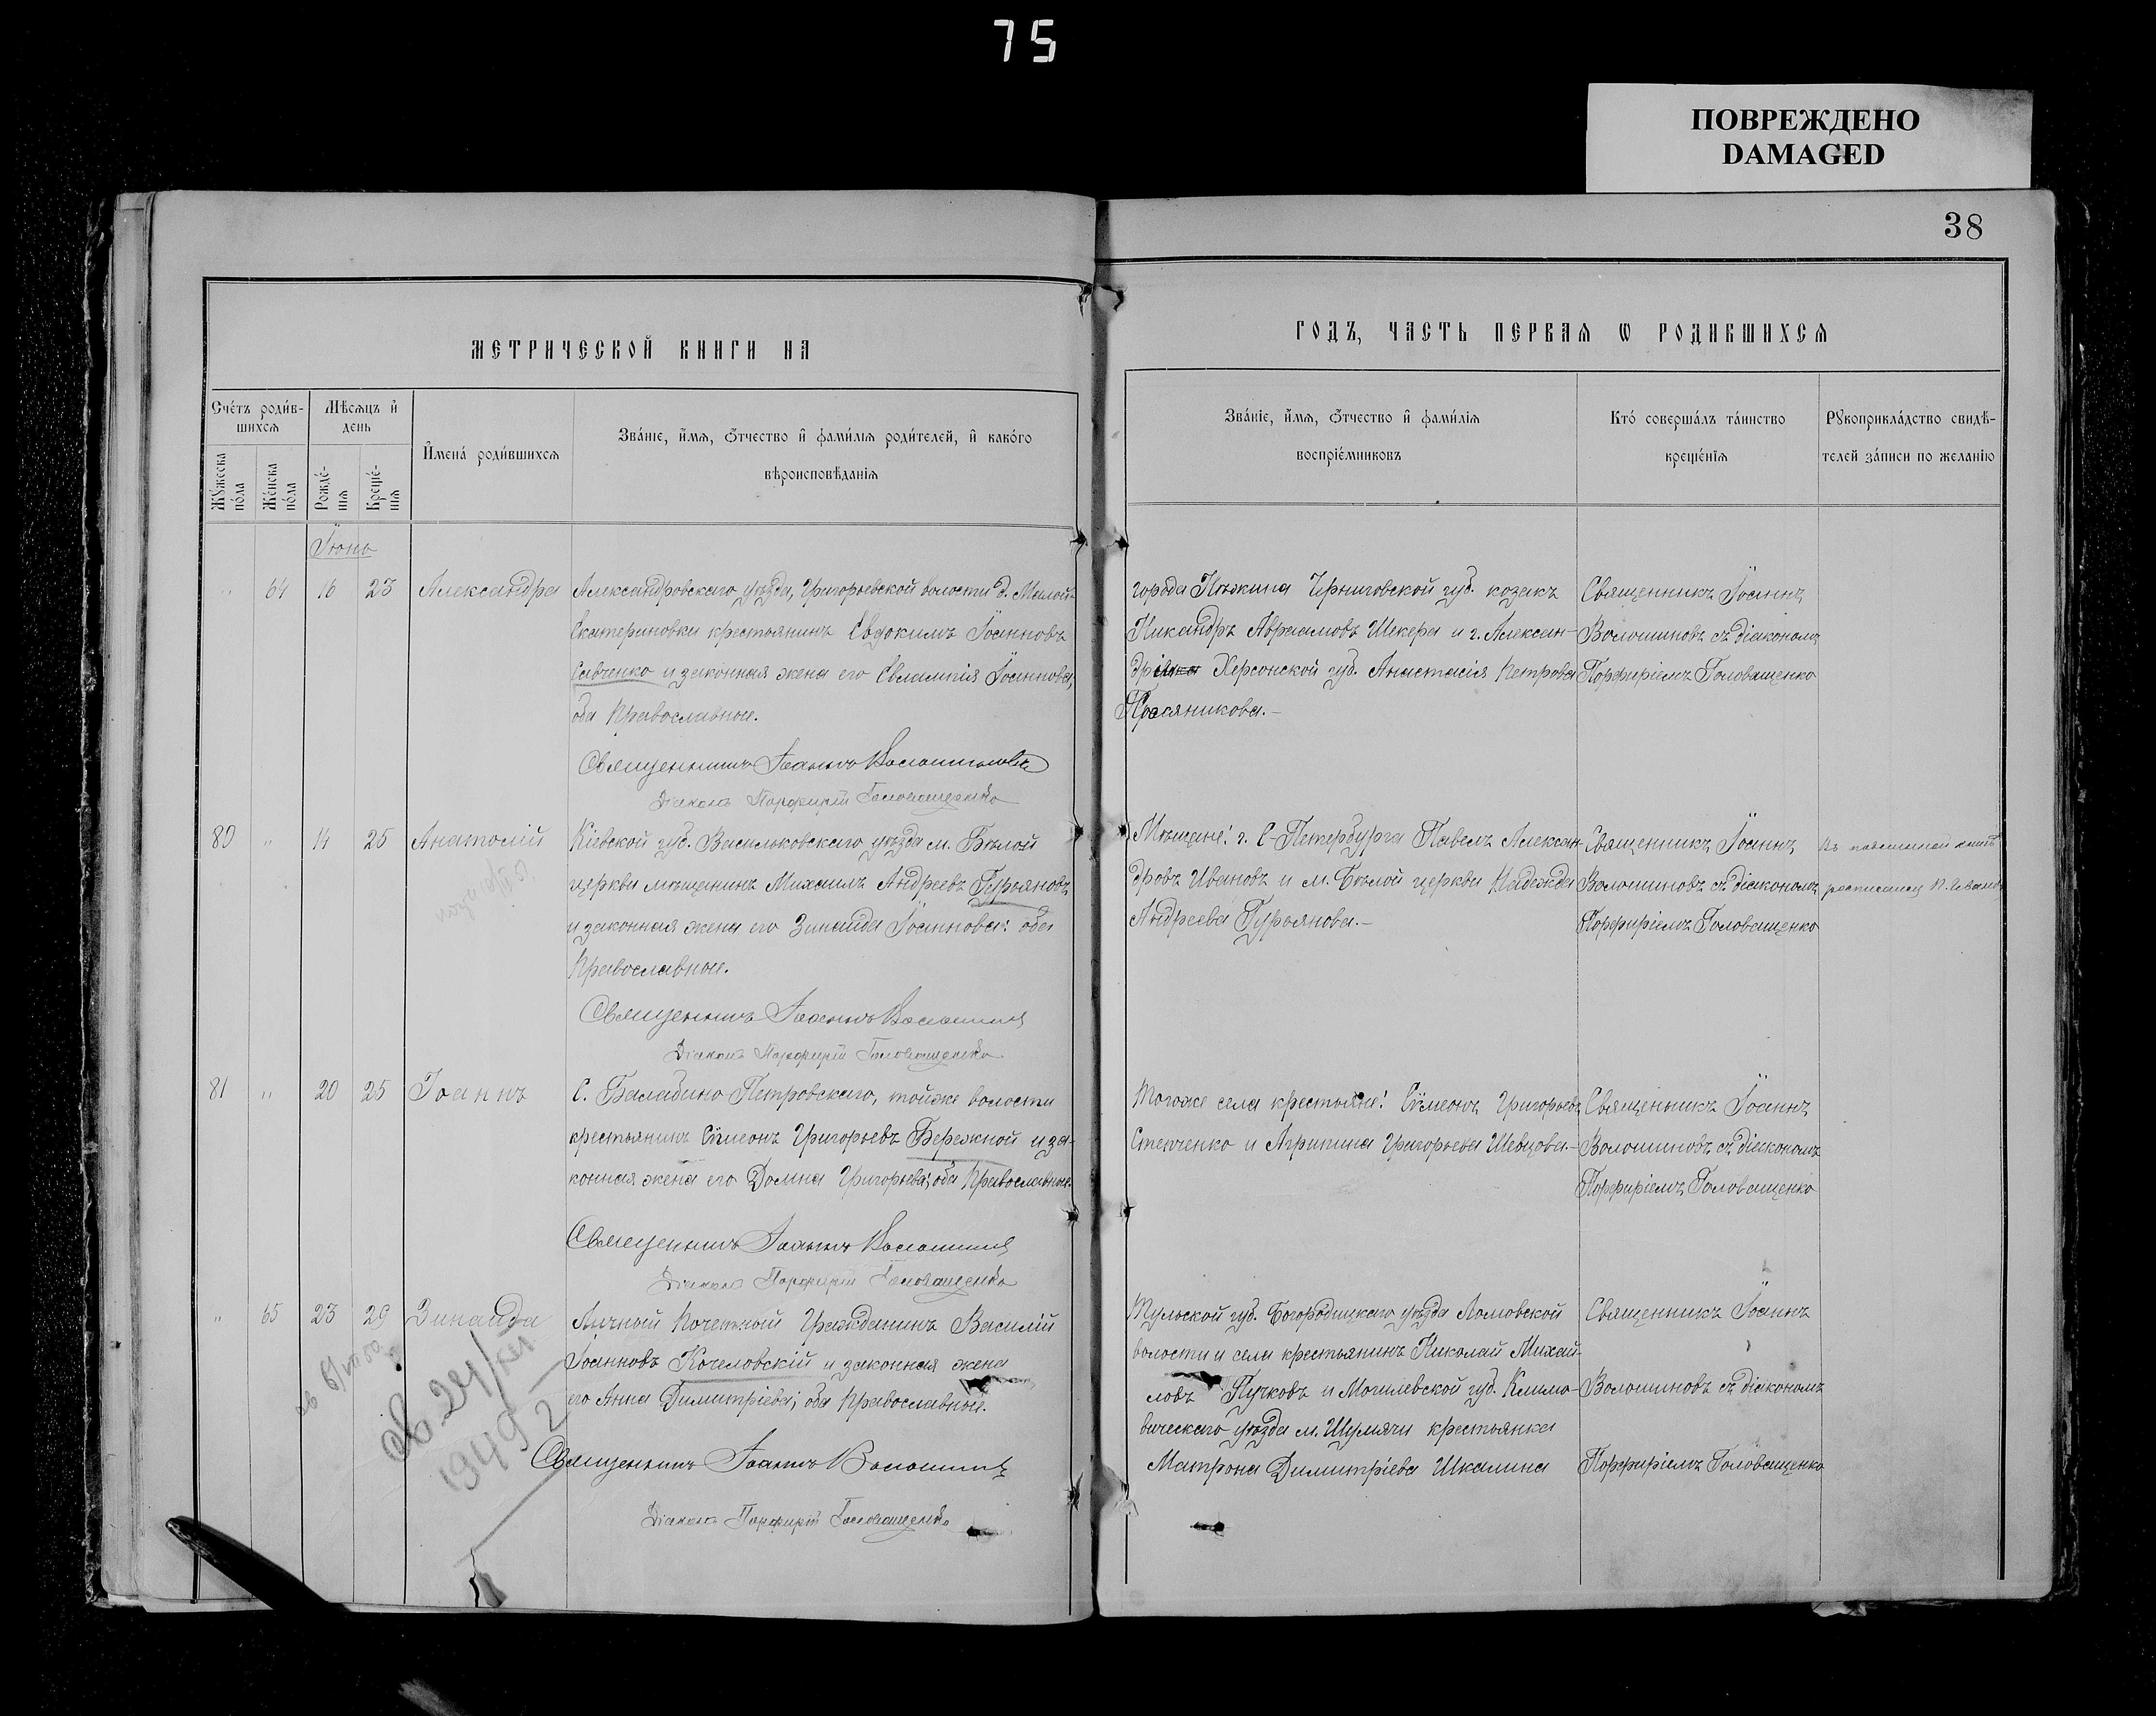 75
ПОВРЕЖДЕНО
DAMAGED
38
МЕТРИЧЕСКОЙ КНИГИ НА
ГОДЪ, ЧАСТЬ ПЕРВАЯ Ѡ РОДИВШИХСЯ
Счéтъ роди́в-
шихся
Мѣсяцъ и҆
день
И҆мена́ роди́вшихся
Зва́нїе, и҆́мя, ѻ҆́тчество и҆ фами́лїя роди́телей, и҆ како́го
вѣроисповѣданїя
Мꙋ́жеска
по́ла
Же́нска
по́ла
Рожде́-
нїя
Креще́-
нїя
Зва́нїе, и҆́мя, ѻ҆́тчество и҆ фами́лїя
воспрїе́мниковъ
Кто́ соверша́лъ та́инство
креще́нїя
Рꙋкоприкла́дство свидѣ́-
телей за́писи по жела́нїю
Іюнь
" 64 16 23 Александра
Александровскаго уѣзда, Григорьевской волости д. Малой-
Екатериновки крестьянинъ Евдокимъ Іоанновъ
Савченко и законная жена его Евлампія Іоаннова,
оба Православные.
Священникъ Іоаннъ Волошиновъ
Діаконъ Порфирій Головащенко
города Нѣжина Черниговской губ. козакъ
Никандръ Авраамовъ Шкера и г. Алексан-
дрі Херсонской губ. Анастасія Петрова
Священникъ Іоаннъ
Волошиновъ съ діакономъ
Порфиріемъ Головащенко
80 " 14 25 Анатолій
Кіевской губ. Васильковскаго уѣзда м. Бѣлой
церкви мѣщанинъ Михаилъ Андреевъ Гурьяновъ
и законная жена его Зинаида Іоаннова: оба
Православные.
Священникъ Іоаннъ Волошиновъ
Діаконъ Порфирій Головащенко
Мѣщане: г. С-Петербурга Павелъ Алексан-
дровъ Ивановъ и м. Бѣлой церкви Надежда
Андреева Гурьянова.-
Священникъ Іоаннъ
Волошиновъ съ діакономъ
Порфиріемъ Головащенко
81 " 20 25 Іоаннъ
С. Балабино-Петровскаго, тойже волости
крестьянинъ Сѵмеонъ Григорьевъ Бережной и за-
конная жена его Домна Григорьева; оба Православные.
Священникъ Іоаннъ Волошиновъ
Діаконъ Порфирій Головащенко
Тогоже села крестьяне: Сѵмеонъ Григорьевъ
Степченко и Агрипина Григорьева Шевцова.-
Священникъ Іоаннъ
Волошиновъ съ діакономъ
Порфиріемъ Головащенко
" 65 23 29 Зинаида
Личный Почетный Гражданинъ Василій
Іоанновъ Кочеловскій и законная жена
его Анна Димитріева; оба Православные.
Священникъ Іоаннъ Волошиновъ
Діаконъ Порфирій Головащенко
Тульской губ. Богородицкаго уѣзда Ломовской
волости и села крестьянинъ Николай Михай-
ловъ Пучковъ и Могилевской губ. Климо-
вическаго уѣзда м. Шумячи крестьянка
Матрона Димитріева Шкалина
Священникъ Іоаннъ
Волошиновъ съ діакономъ
Порфиріемъ Головащенко
1949 2